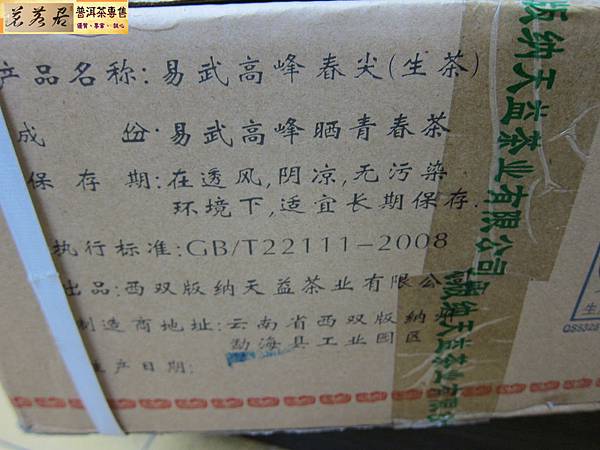 茗茗居
普洱茶專售
優質、專業、誠心
产品名称:易武高峰春尖(生茶)
成 份:易武高峰晒青春茶
保存期:在透风,阴凉,无污染
环境下,适宜长期保存.
执行标准:GB/T22111-2008
出品:西双版纳天益茶业有限公
制造商地址:云南省西双版纳
勐海县工业园区
生产日期:
版纳天益茶业有限公司
版纳天益茶业有限